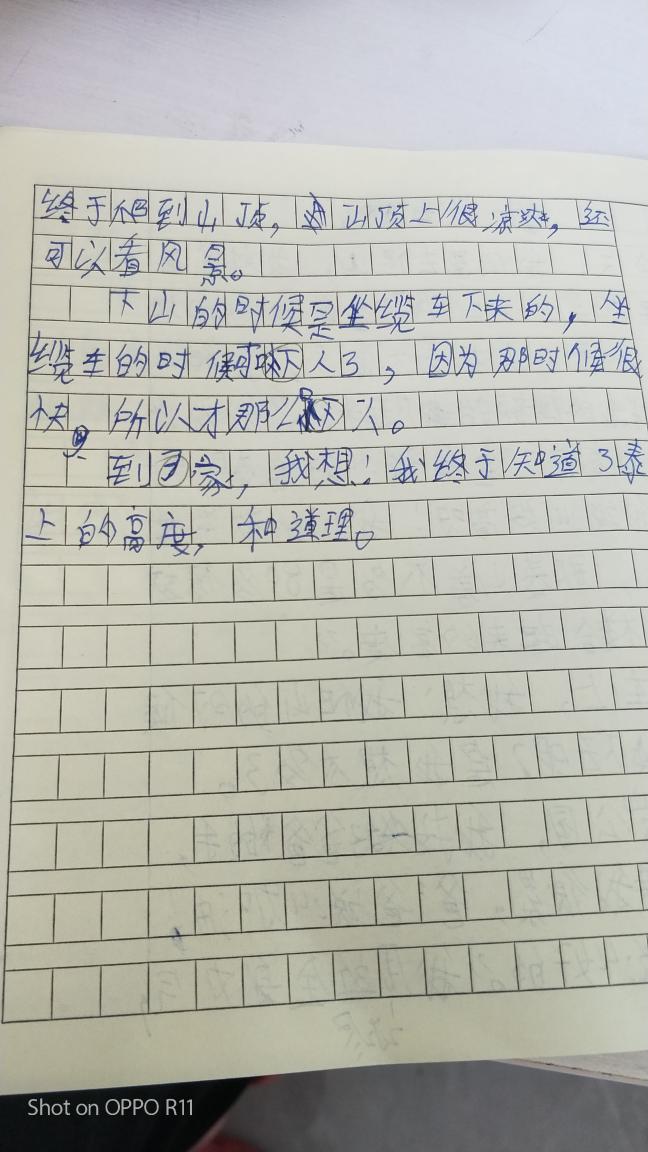 终于爬到山顶，山顶上很凉快，还
可以看风景。
下山的时候是坐缆车下来的，坐
缆车的时候吓人了，因为那时候很
快，所以才那么吓人。
到了家，我想！我终于知道了泰
上的高度，和道理。
Shot on OPPO R11